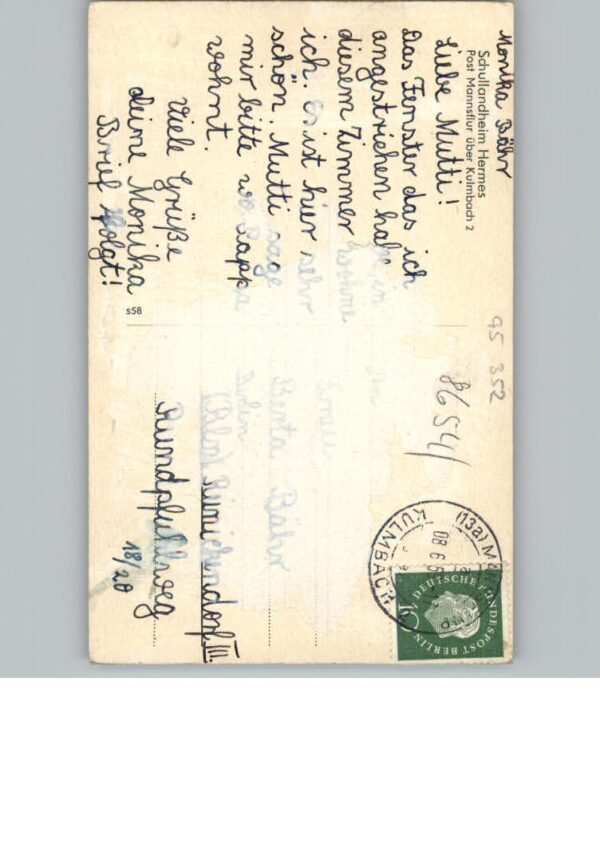 Monika Bähr
Schullandheim Hermes
Post Mannsflur über Kulmbach 2
Liebe Mutti!
Das Fenster das ich
angestrichen habe, in
diesem Zimmer wohne
ich. es ist hier sehr
schön. Mutti sage
mir bitte wo Pappa
wohnt.
Viele Grüße
deine Monika
Brief folgt!
s58
95 352
86541
(13a)
KULMBACH
08 6
DEUTSCHE BUNDESPOST BERLIN
10
An
Frau
Berta Bähr
Berlin
(Bln) Reinickendorf III.
Rundpfuhlweg
18/20